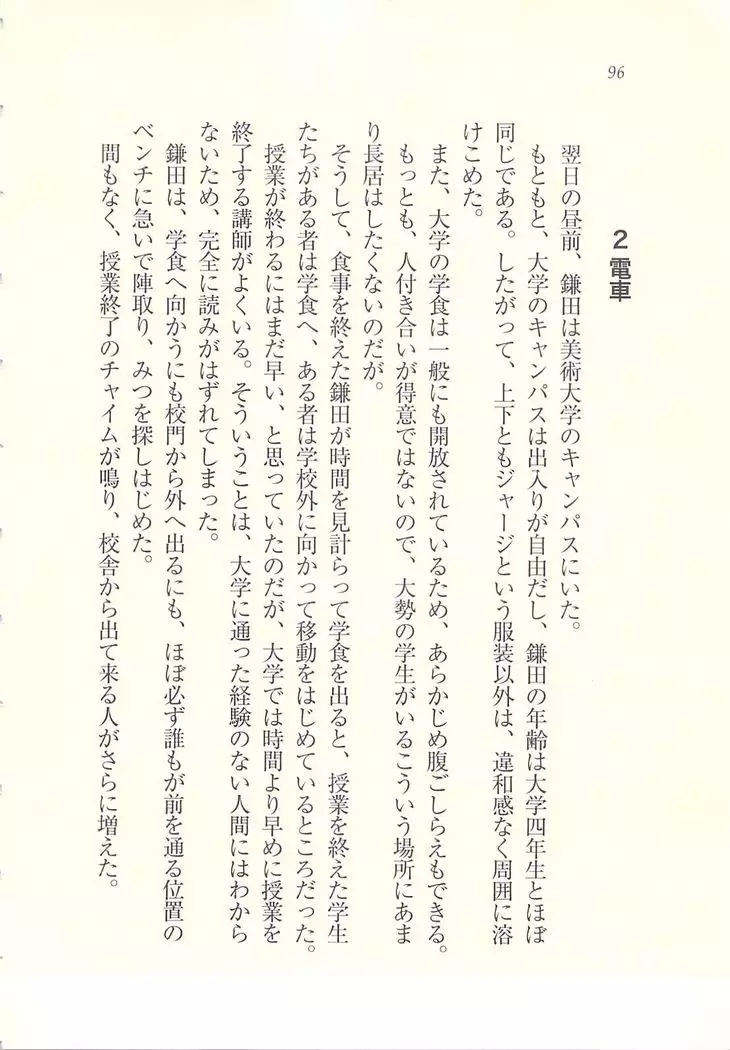 96
2 電車
翌日の昼前、鎌田は美術大学のキャンパスにいた。
もともと、大学のキャンパスは出入りが自由だし、鎌田の年齢は大学四年生とほぼ
同じである。したがって、上下ともジャージという服装以外は、違和感なく周囲に溶
けこめた。
また、大学の学食は一般にも開放されているため、あらかじめ腹ごしらえもできる。
もっとも、人付き合いが得意ではないので、大勢の学生がいるこういう場所にあま
り長居はしたくないのだが。
そうして、食事を終えた鎌田が時間を見計らって学食を出ると、授業を終えた学生
たちがある者は学食へ、ある者は学校外に向かって移動をはじめているところだった。
授業が終わるにはまだ早い、と思っていたのだが、大学では時間より早めに授業を
終了する講師がよくいる。そういうことは、大学に通った経験のない人間にはわから
ないため、完全に読みがはずれてしまった。
鎌田は、学食へ向かうにも校門から外へ出るにも、ほぼ必ず誰もが前を通る位置の
ベンチに急いで陣取り、みつを探しはじめた。
間もなく、授業終了のチャイムが鳴り、校舎から出て来る人がさらに増えた。